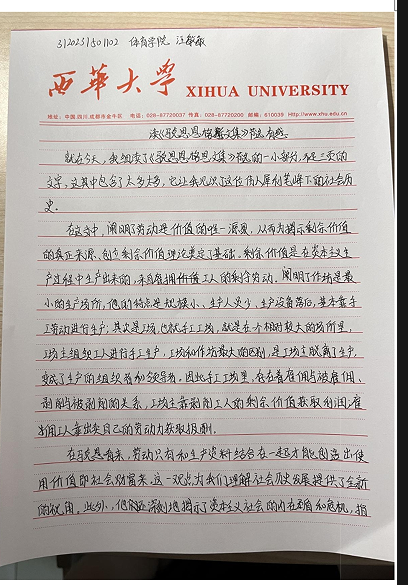 3120231501102 体育学院 汪敏敏
西华大学 XIHUA UNIVERSITY
地址:中国.四川.成都市金牛区 电话:028-87720037 传真:028-87720200 邮编:610039 Http://www.xhu.edu.cn
读《马克思恩格斯文集》节选有感
就在今天,我细读了《马克思恩格斯文集》节选的一小部分,不足三页的
文字,这其中包含了太多太多,它让我见识了这位伟人犀利笔锋下的社会历
史。
在这文中,阐明了劳动是价值的唯一源泉,从而为揭示剩余价值
的真正来源、创立剩余价值理论奠定了基础。剩余价值是在资本主义生
产过程中生产出来的,来自雇佣价值工人的剩余劳动。阐明了作坊是最
小的生产场所,他的特点是规模小、生产人员少、生产设备落后,基本靠手
工劳动进行生产;其次是工场,也就手工工场,就是在个相对较大的场所里,
工场主组织工人进行手工生产,工场和作坊最大的区别,是工场主脱离了生产,
变成了生产的组织者和领导者。因此手工工场里,存在着雇佣与被雇佣、
剥削与被剥削的关系,工场主靠剥削工人的剩余价值获取利润,雇
佣工人靠出卖自己的劳动力获取报酬。
在马克思看来,劳动只有和生产资料结合在一起才能创造出使
用价值即社会财富来。这一观点为我们理解社会历史发展提供了全新
的视角。此外,他们还深刻地揭示了资本主义社会的内在矛盾和危机,指